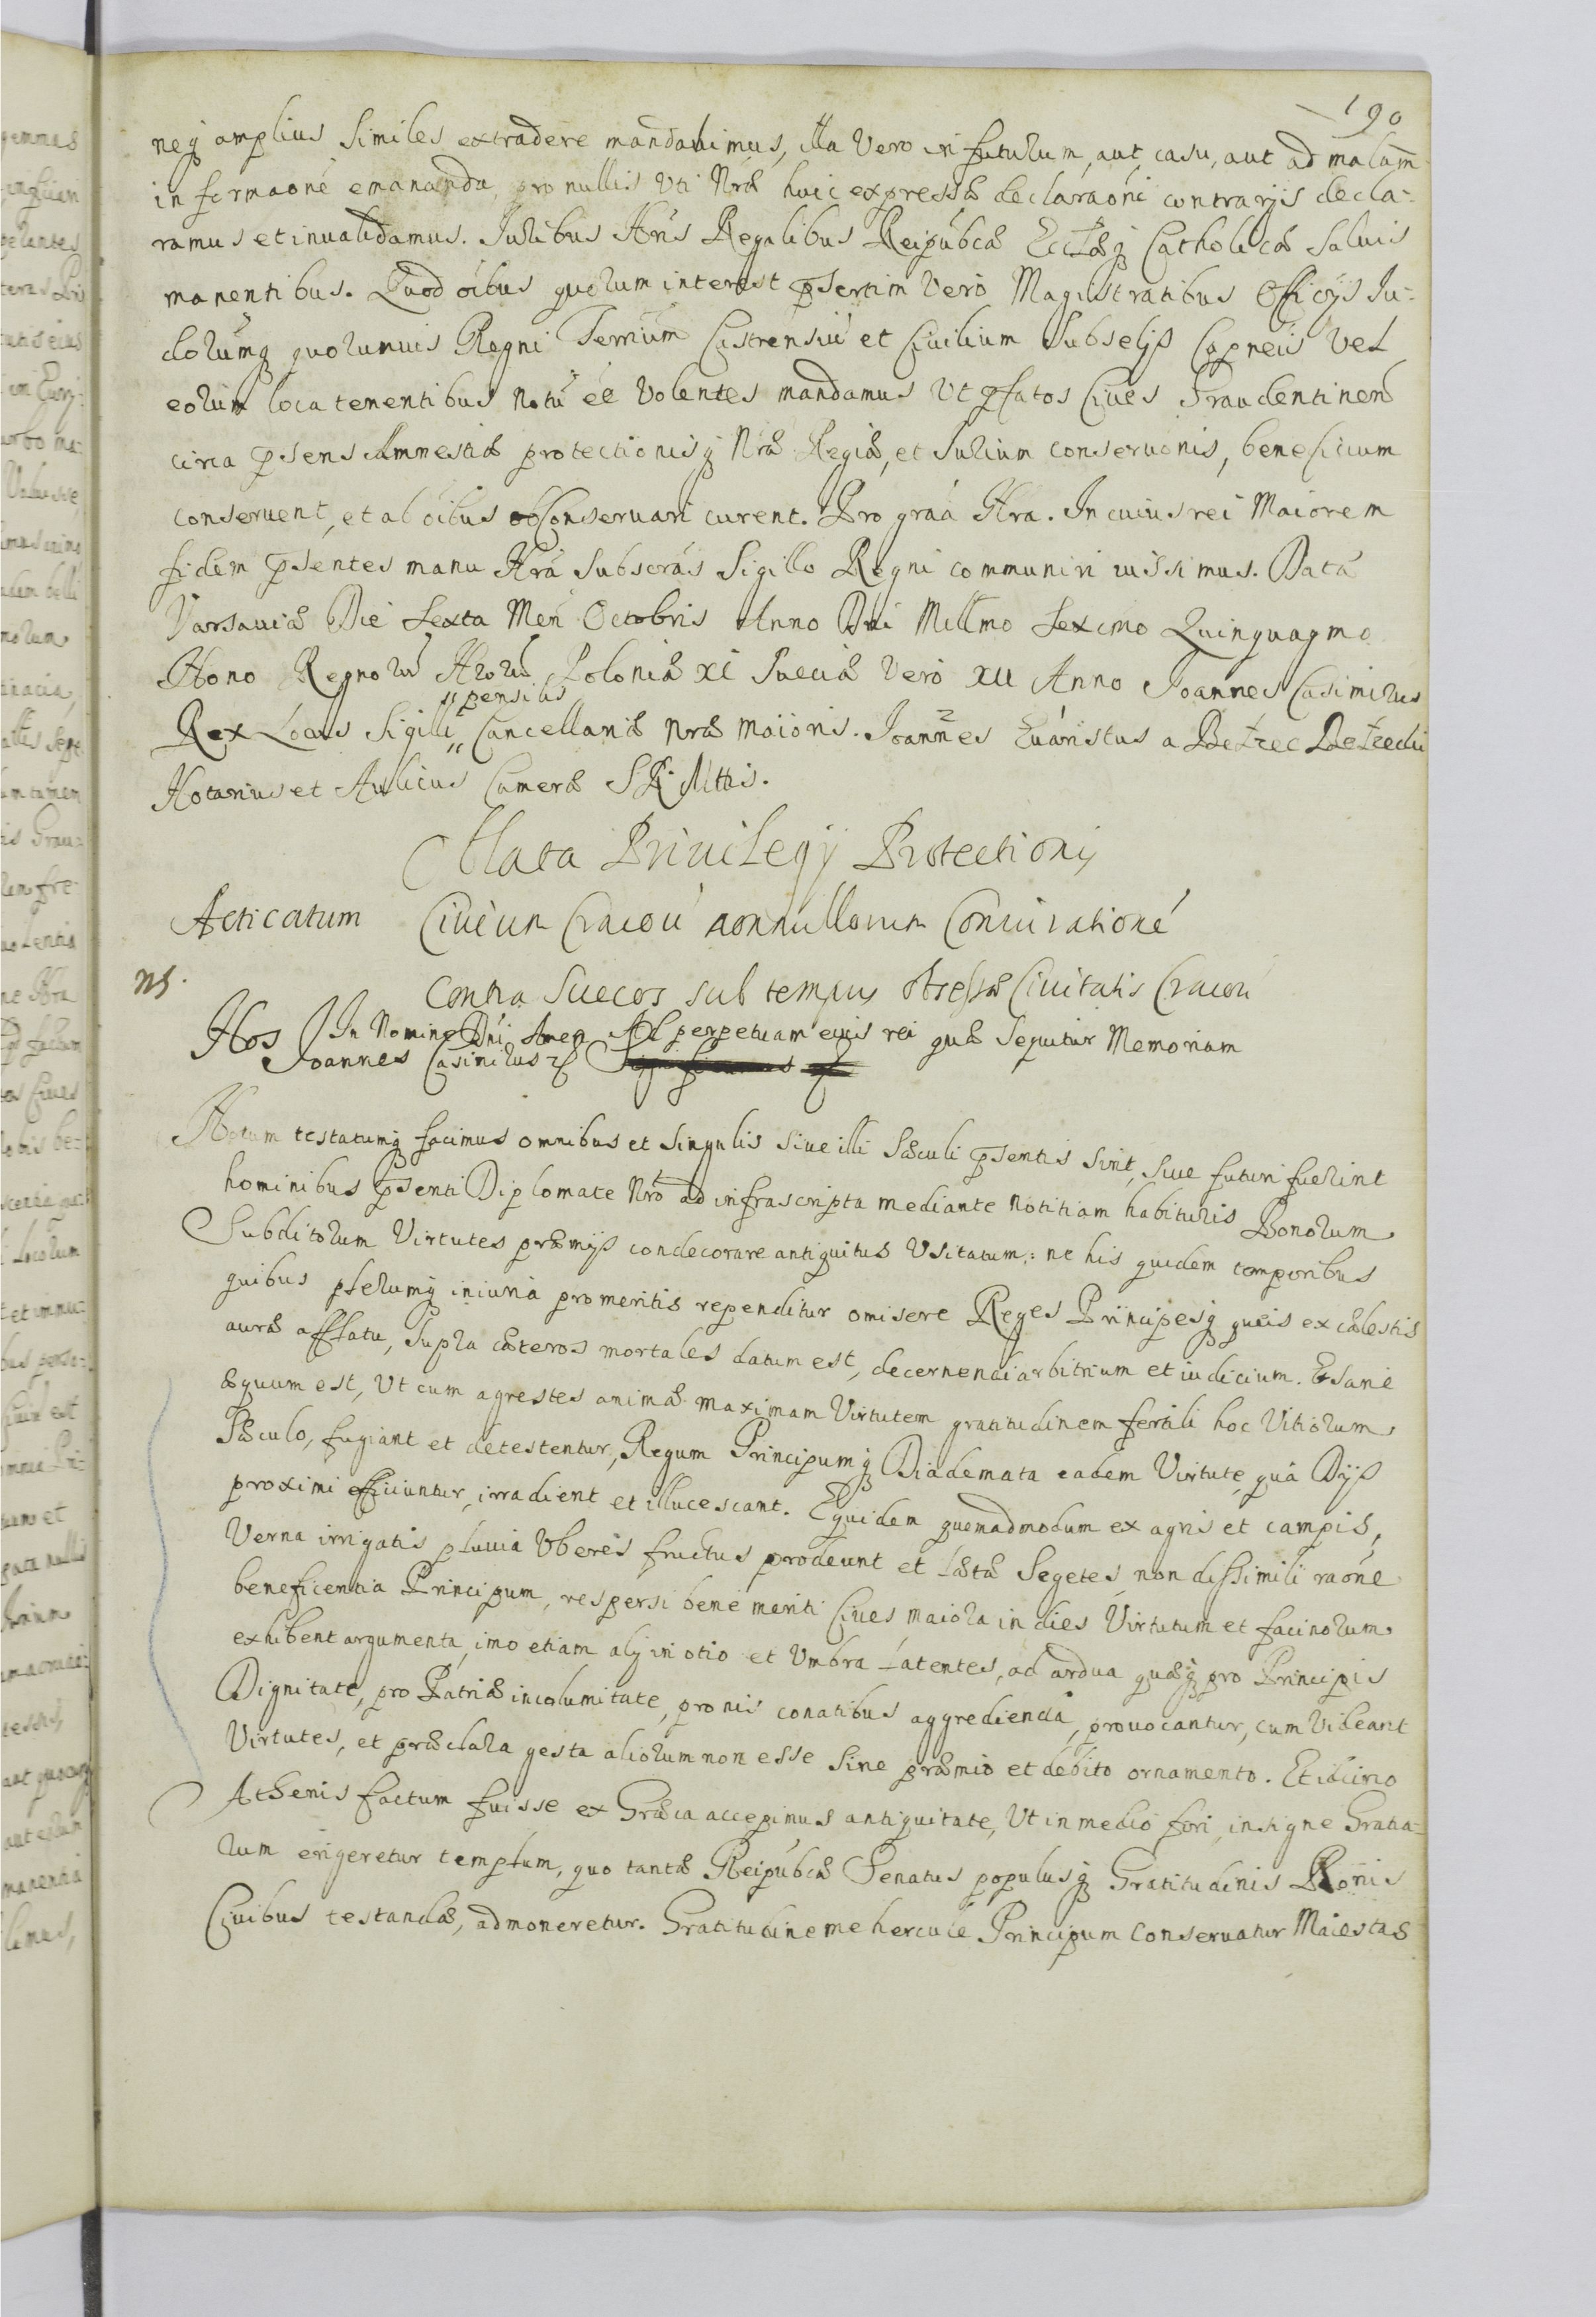 190
neq amplius Similes extradere mandabimus, illa Vero in futurum, aut casu, aut ad malam
informaoné emananda, pro nullis Uti Nræ huic expressæ declaraoni contrarijs decla-
ramus et inualidamus. Juribus Nris Regalibus Reipubcæ Ecclæq Catholicæ Saluis
manentibus. Quod oibus quorum interest pSertim Vero Magistratibus Officijs Ju-
diorumq quorumuis Regni Terrium Castrensiu et Ciuilium Subselijs Capneis Vel
eorum loca tenentibus Notu ee Volentes mandamus Ut pfatos Ciues Fraudentinen
circa pSens Amnestiæ protectionisq Nræ Regiæ, et Jurium conseruonis, beneficium
conseruent, et ab oibus obConseruari curent. Pro graa Nra. In cuius rei Maiorem
fidem pSentes manu Nra Subscras Sigillo Regni communiri iussimus. Data
Varsauiæ Die Sexta Men Octobris Anno Dni Millmo Sexcmo Quinquagmo
Nono Regnoru Nroru Poloniæ XI Sueciæ Vero XII Anno Joannes Casimirus
" pensilis
Rex Locus Sigilli " Cancellariæ Nræ Maioris. Joannes Euaristus a Bełzec Bełzecki
Notarius et Aulicus Cameræ S R Mttis.
Oblata Priuilegij Protectionis
Acticatum Ciuium Cracou nonnullorum Coniurationé
Contra Suecos sub tempus obsessæ Ciuitatis Cracou
NB.
In Nomine Dni Amen Ad perpetuam euis rei quæ Sequitur Memoriam
Nos Joannes Casimirus
Notum testatumq facimus omnibus et Singulis Siue illi Sæculi pSentis Sint, Siue futuri fuerint
hominibus pSenti Diplomate Nro ad infrascripta mediante Notitiam habituris Bonorum
Subditorum Virtutes præmijs condecorare antiquitus Usitatum: ne his quidem temporibus
quibus plerumq iniuria pro meritis rependitur omisere Reges Principesq queis ex cælestis
auræ afflatu, Supra cæteros mortales datum est, decernendi arbitrium et iudicium. E Sane
æquum est, Ut cum agrestes animæ maximam Virtutem gratitudinem fertili hoc Vitiorum
Sæculo, fugiant et detestentur, Regum Principumq Diademata eadem Virtute, qua Dijs
proximi efficiuntur, irradient et illucescant. Equidem quemadmodum ex agris et campis,
Verna irrigatis pluuia Uberes fructus prodeunt et lætæ Segetes, non dissimili raone
beneficentia Principum, respersi bene meriti Ciues maiora in dies Virtutum et facinorum
exhibent argumenta, imo etiam alij in otio et Umbra latentes, ad ardua quæq pro Principis
Dignitate, pro Patriæ incolumitate, pronis conatibus aggredienda, prouocantur, cum Videant
Virtutes, et præclara gesta aliorum non esse Sine præmio et debito ornamento. Et idcirco
Athenis factum fuisse ex Græca accepimus antiquitate, Ut in medio fori, insigne Gratia-
rum erigeretur templum, quo tantæ Reipubcæ Senatus populusq Gratitudinis Bonis
Ciuibus testandæ, admoneretur. Gratitudine me hercule Principum Conseruatur Maiestas